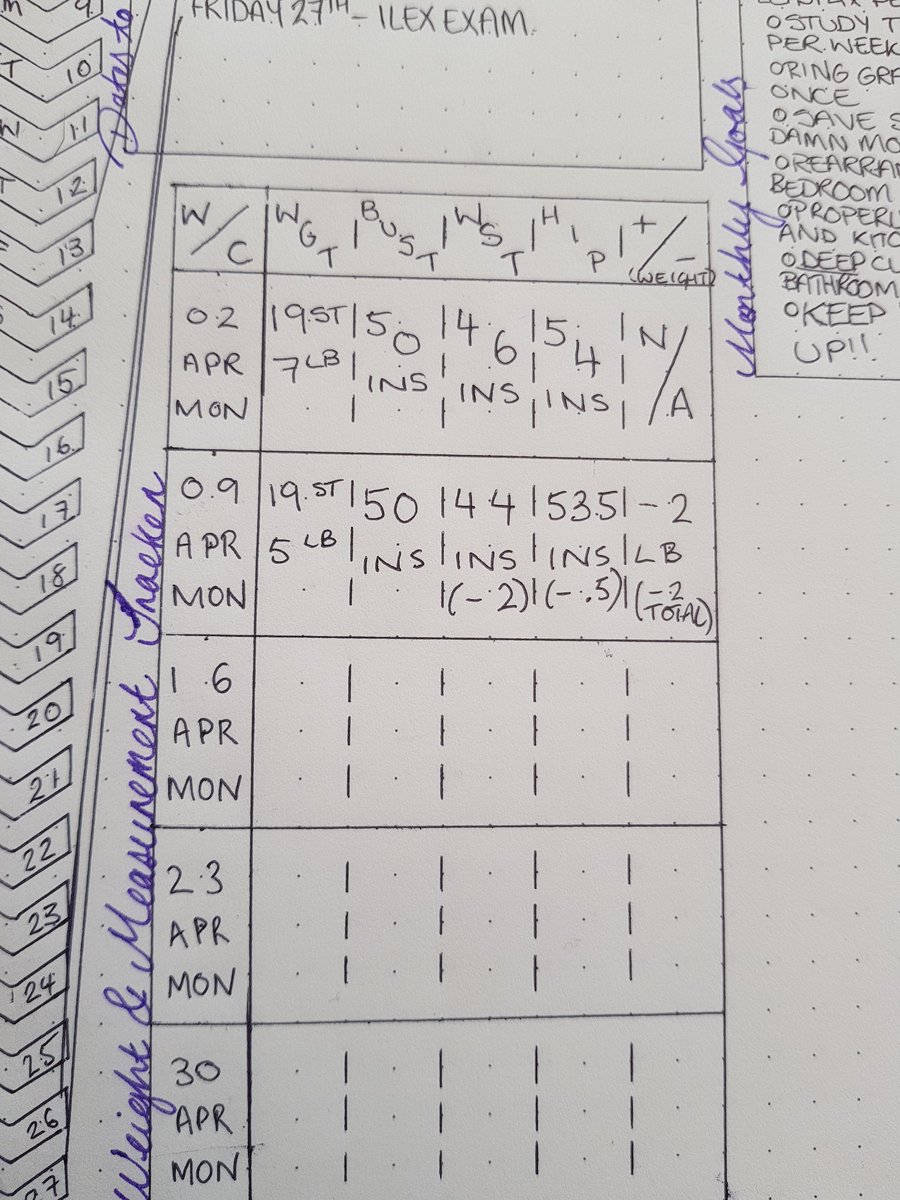 FRIDAY 27TH - ILEX EXAM.
Dates to
Monthly Goals
O STUDY
PER WEEK
O RING
ONCE
O SAVE
DAMN
O
BEDROOM
O
AND
O DEEP
BATHROOM
O KEEP
UP!!
9
T 10
W 11
T 12
13
14
15
16
17
18
19
20
21
22
23
24
25
26
27
Weight & Measurement Tracker
W/C WGT | BUST | WST | HIP | +/- (WEIGHT)
02 19.ST | 50 | 46 | 54 | N/A
APR 7 LB | INS | INS | INS |
MON
09 19.ST | 50 | 44 | 53.5 | -2
APR 5 LB | INS | INS | INS | LB
MON | | (-2) | (-.5) | (-2 TOTAL)
16
APR
MON
23
APR
MON
30
APR
MON